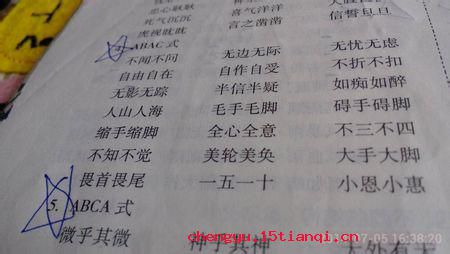 忠心耿耿
死气沉沉 喜气洋洋 信誓旦旦
虎视眈眈 言之凿凿
4. ABAC 式
不闻不问 无边无际 无忧无虑
自由自在 自作自受 不折不扣
无影无踪 半信半疑 如痴如醉
人山人海 毛手毛脚 碍手碍脚
缩手缩脚 全心全意 不三不四
不知不觉 美轮美奂 大手大脚
畏首畏尾 一五一十 小恩小惠
5. ABCA 式
微乎其微 神乎其神 天外有天
07-05 16:38:20
chengyu.15tianqi.cn